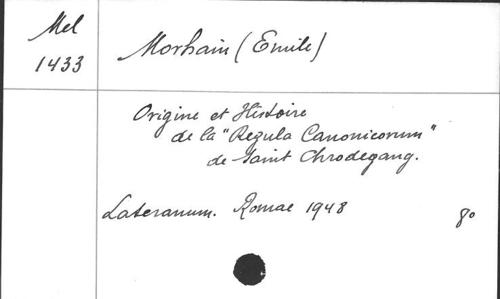 Mel
1433
Morhain (Emile)
Origine et Histoire
de la "Regula Canonicorum"
de Saint Chrodegang.
Lateranum. Romae 1948 8º